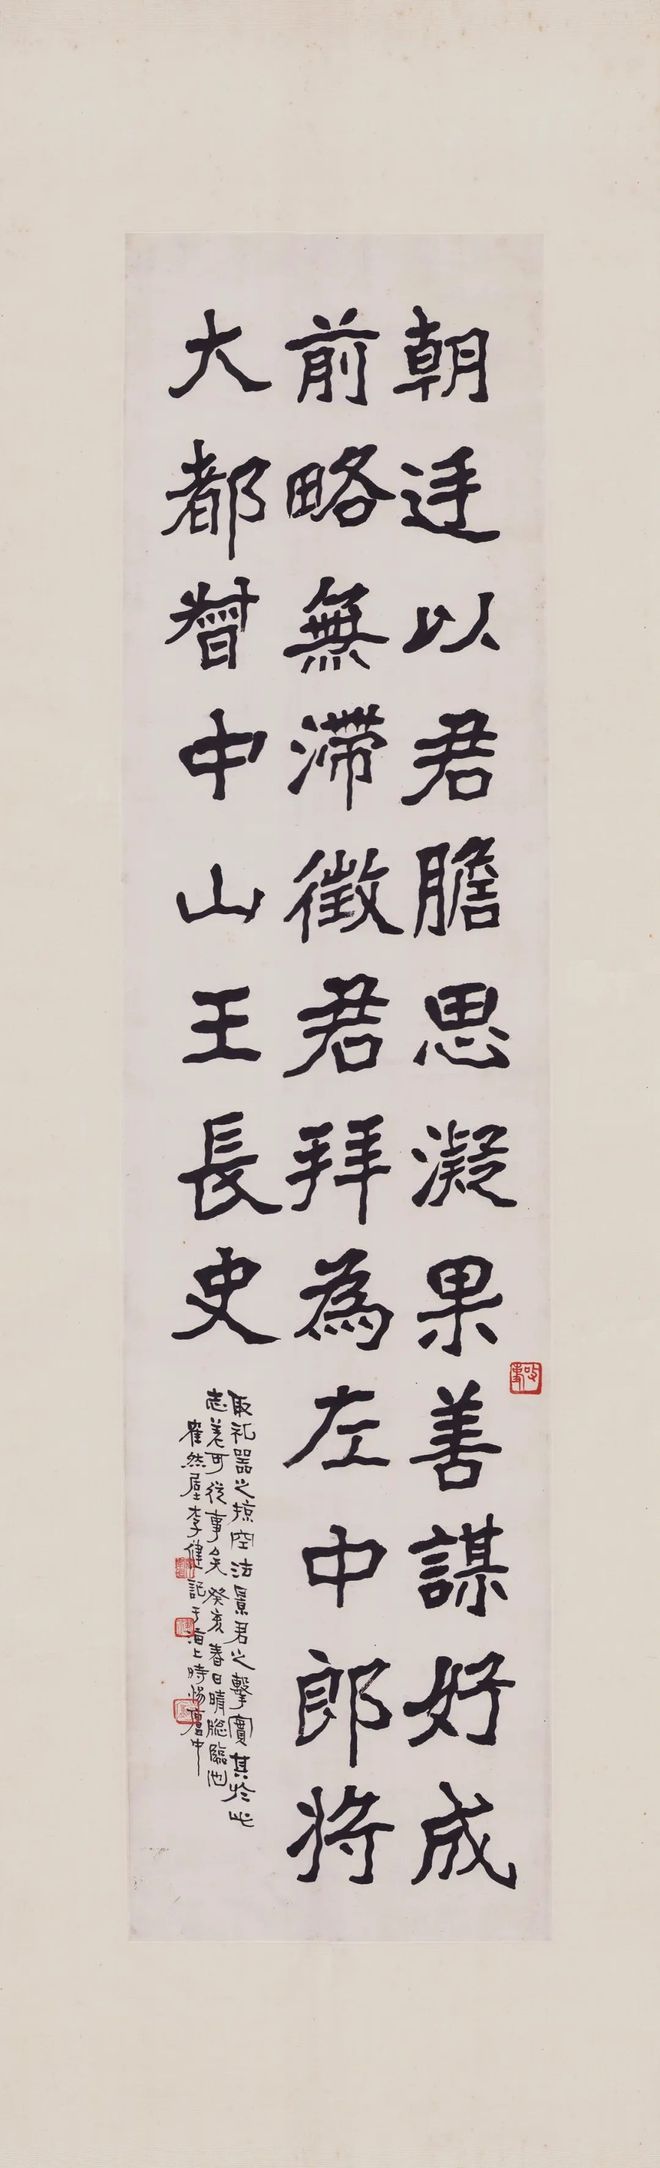 朝廷以君膽思凝果善謀好成
前略無滯徵君拜為左中郎將
大都督中山王長史
取礼器之掠空法景君之擊實其於此
志差可從事矣癸亥春日晴牕臨池
隺然屋李健記于海上時惕廬中